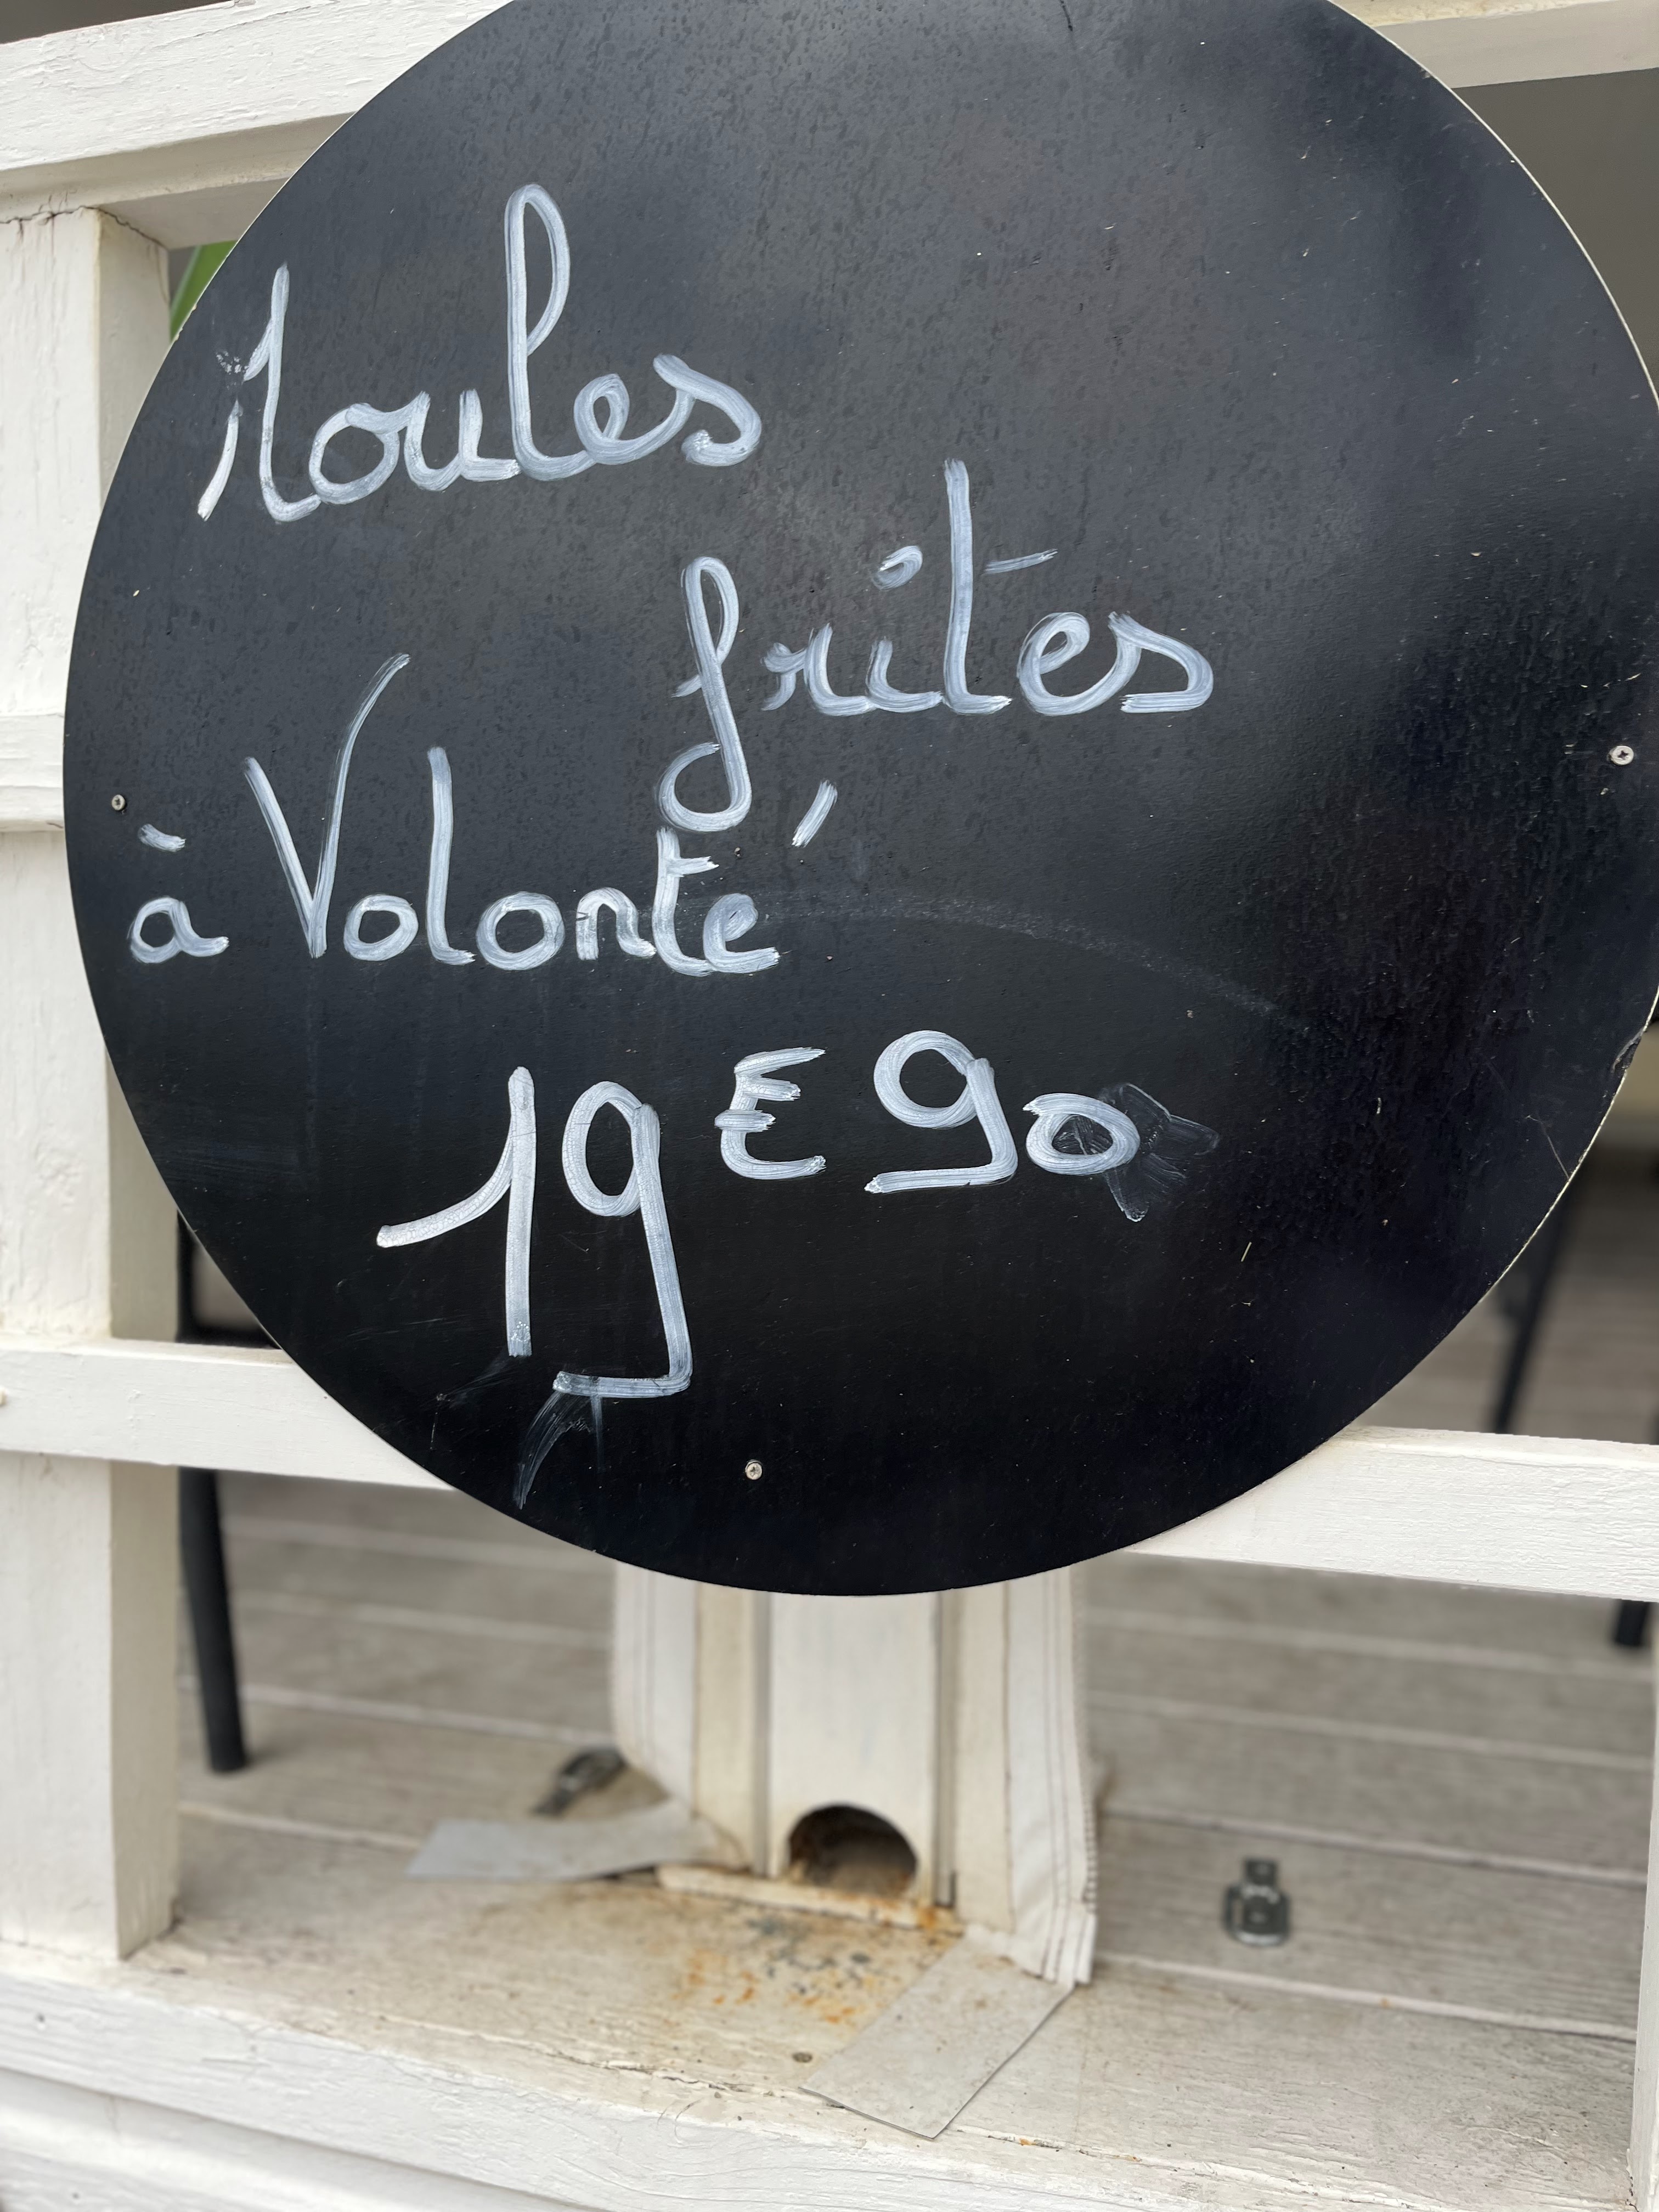 Moules
frites
à Volonté
19€90